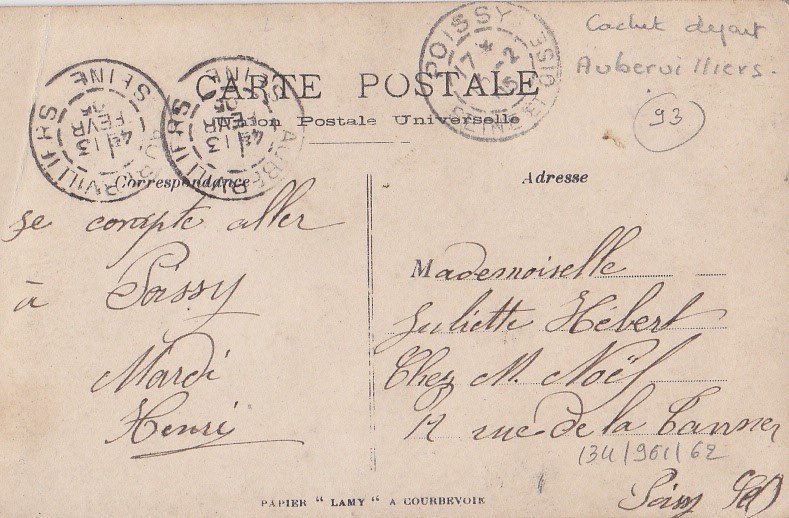 Cachet départ
Aubervilliers.
93
POISSY
SEINE ET OISE
7 *
-2
05
AUBERVILLIERS
SEINE
4E
13
FEVR
05
AUBERVILLIERS
SEINE
4E
13
FEVR
05
CARTE POSTALE
Union Postale Universelle
Correspondance
Adresse
Je compte aller
à Poissy
Mardi
Henri
Mademoiselle
Juliette Hébert
Chez M. Noël
rue de la Tanner
134/961/62
Poissy
PAPIER "LAMY" A COURBEVOIE